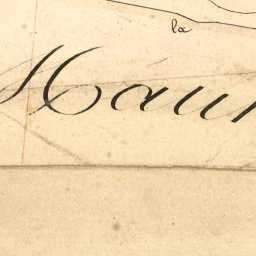 la
Hau